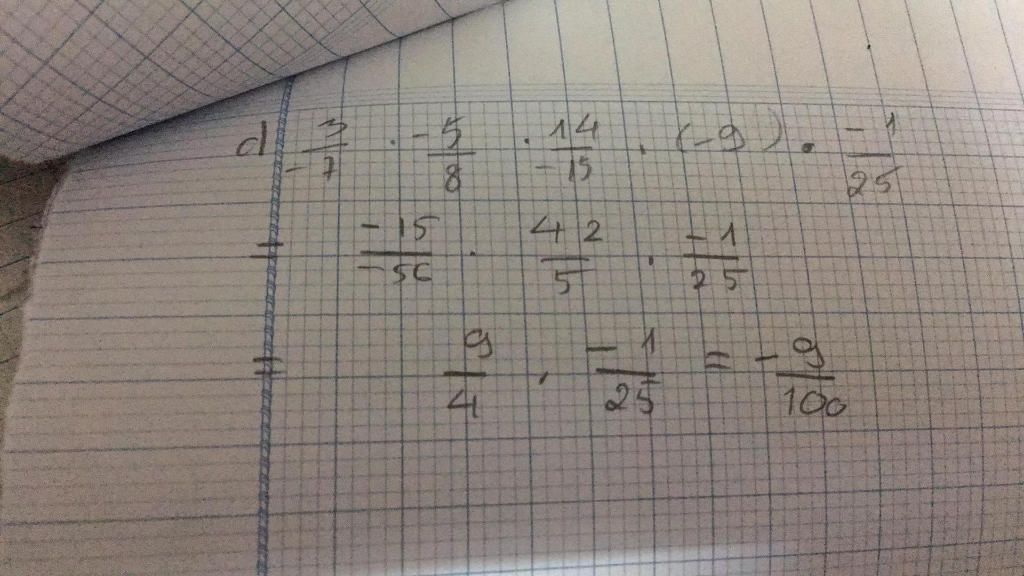 d 3/-7 . -5/8 . 14/-15 . (-9) . -1/25
= -15/-56 . 42/5 . -1/25
= 9/4 . -1/25 = -9/100